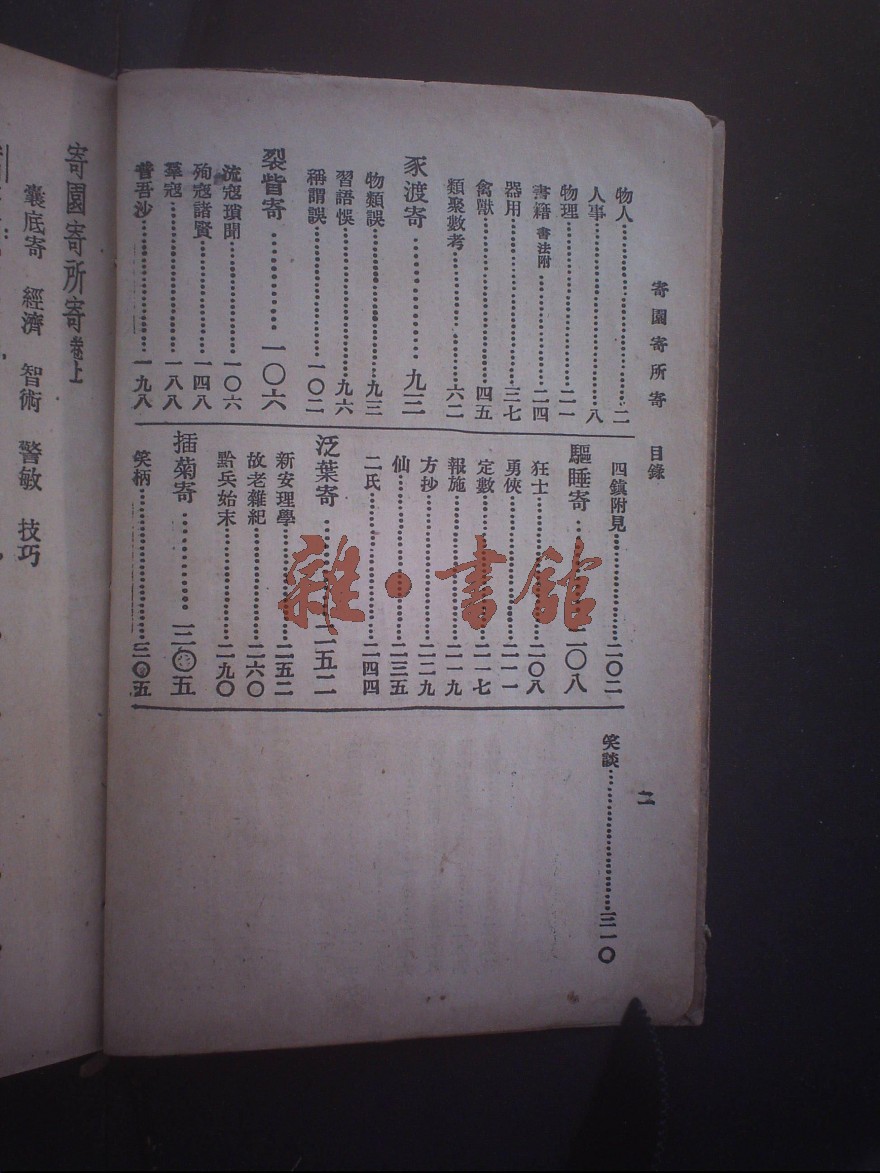 寄園寄所寄 目錄 二
物人……二
人事……八
物理……二一
書籍 書法附……二四
器用……三七
禽獸……四五
類聚數考……六二
豕渡寄……九三
物類誤……九三
習語悞……九六
稱謂誤……一〇二
裂眥寄……一〇六
流寇瑣聞……一〇六
殉寇諸賢……一四八
羣寇……一八八
普吾沙……一九八
四鎮附見……二〇二
驅睡寄……二〇八
狂士……二〇八
勇俠……二一一
定數……二一七
報施……二一九
方抄……二二九
仙……二三五
二氏……二四四
泛葉寄……二五二
新安理學……二五二
故老雜紀……二六〇
黔兵始末……二九〇
插菊寄……三〇五
笑柄……三〇五
笑談……三一〇
寄園寄所寄 卷上
囊底寄 經濟 智術 警敏 技巧
雜·書館